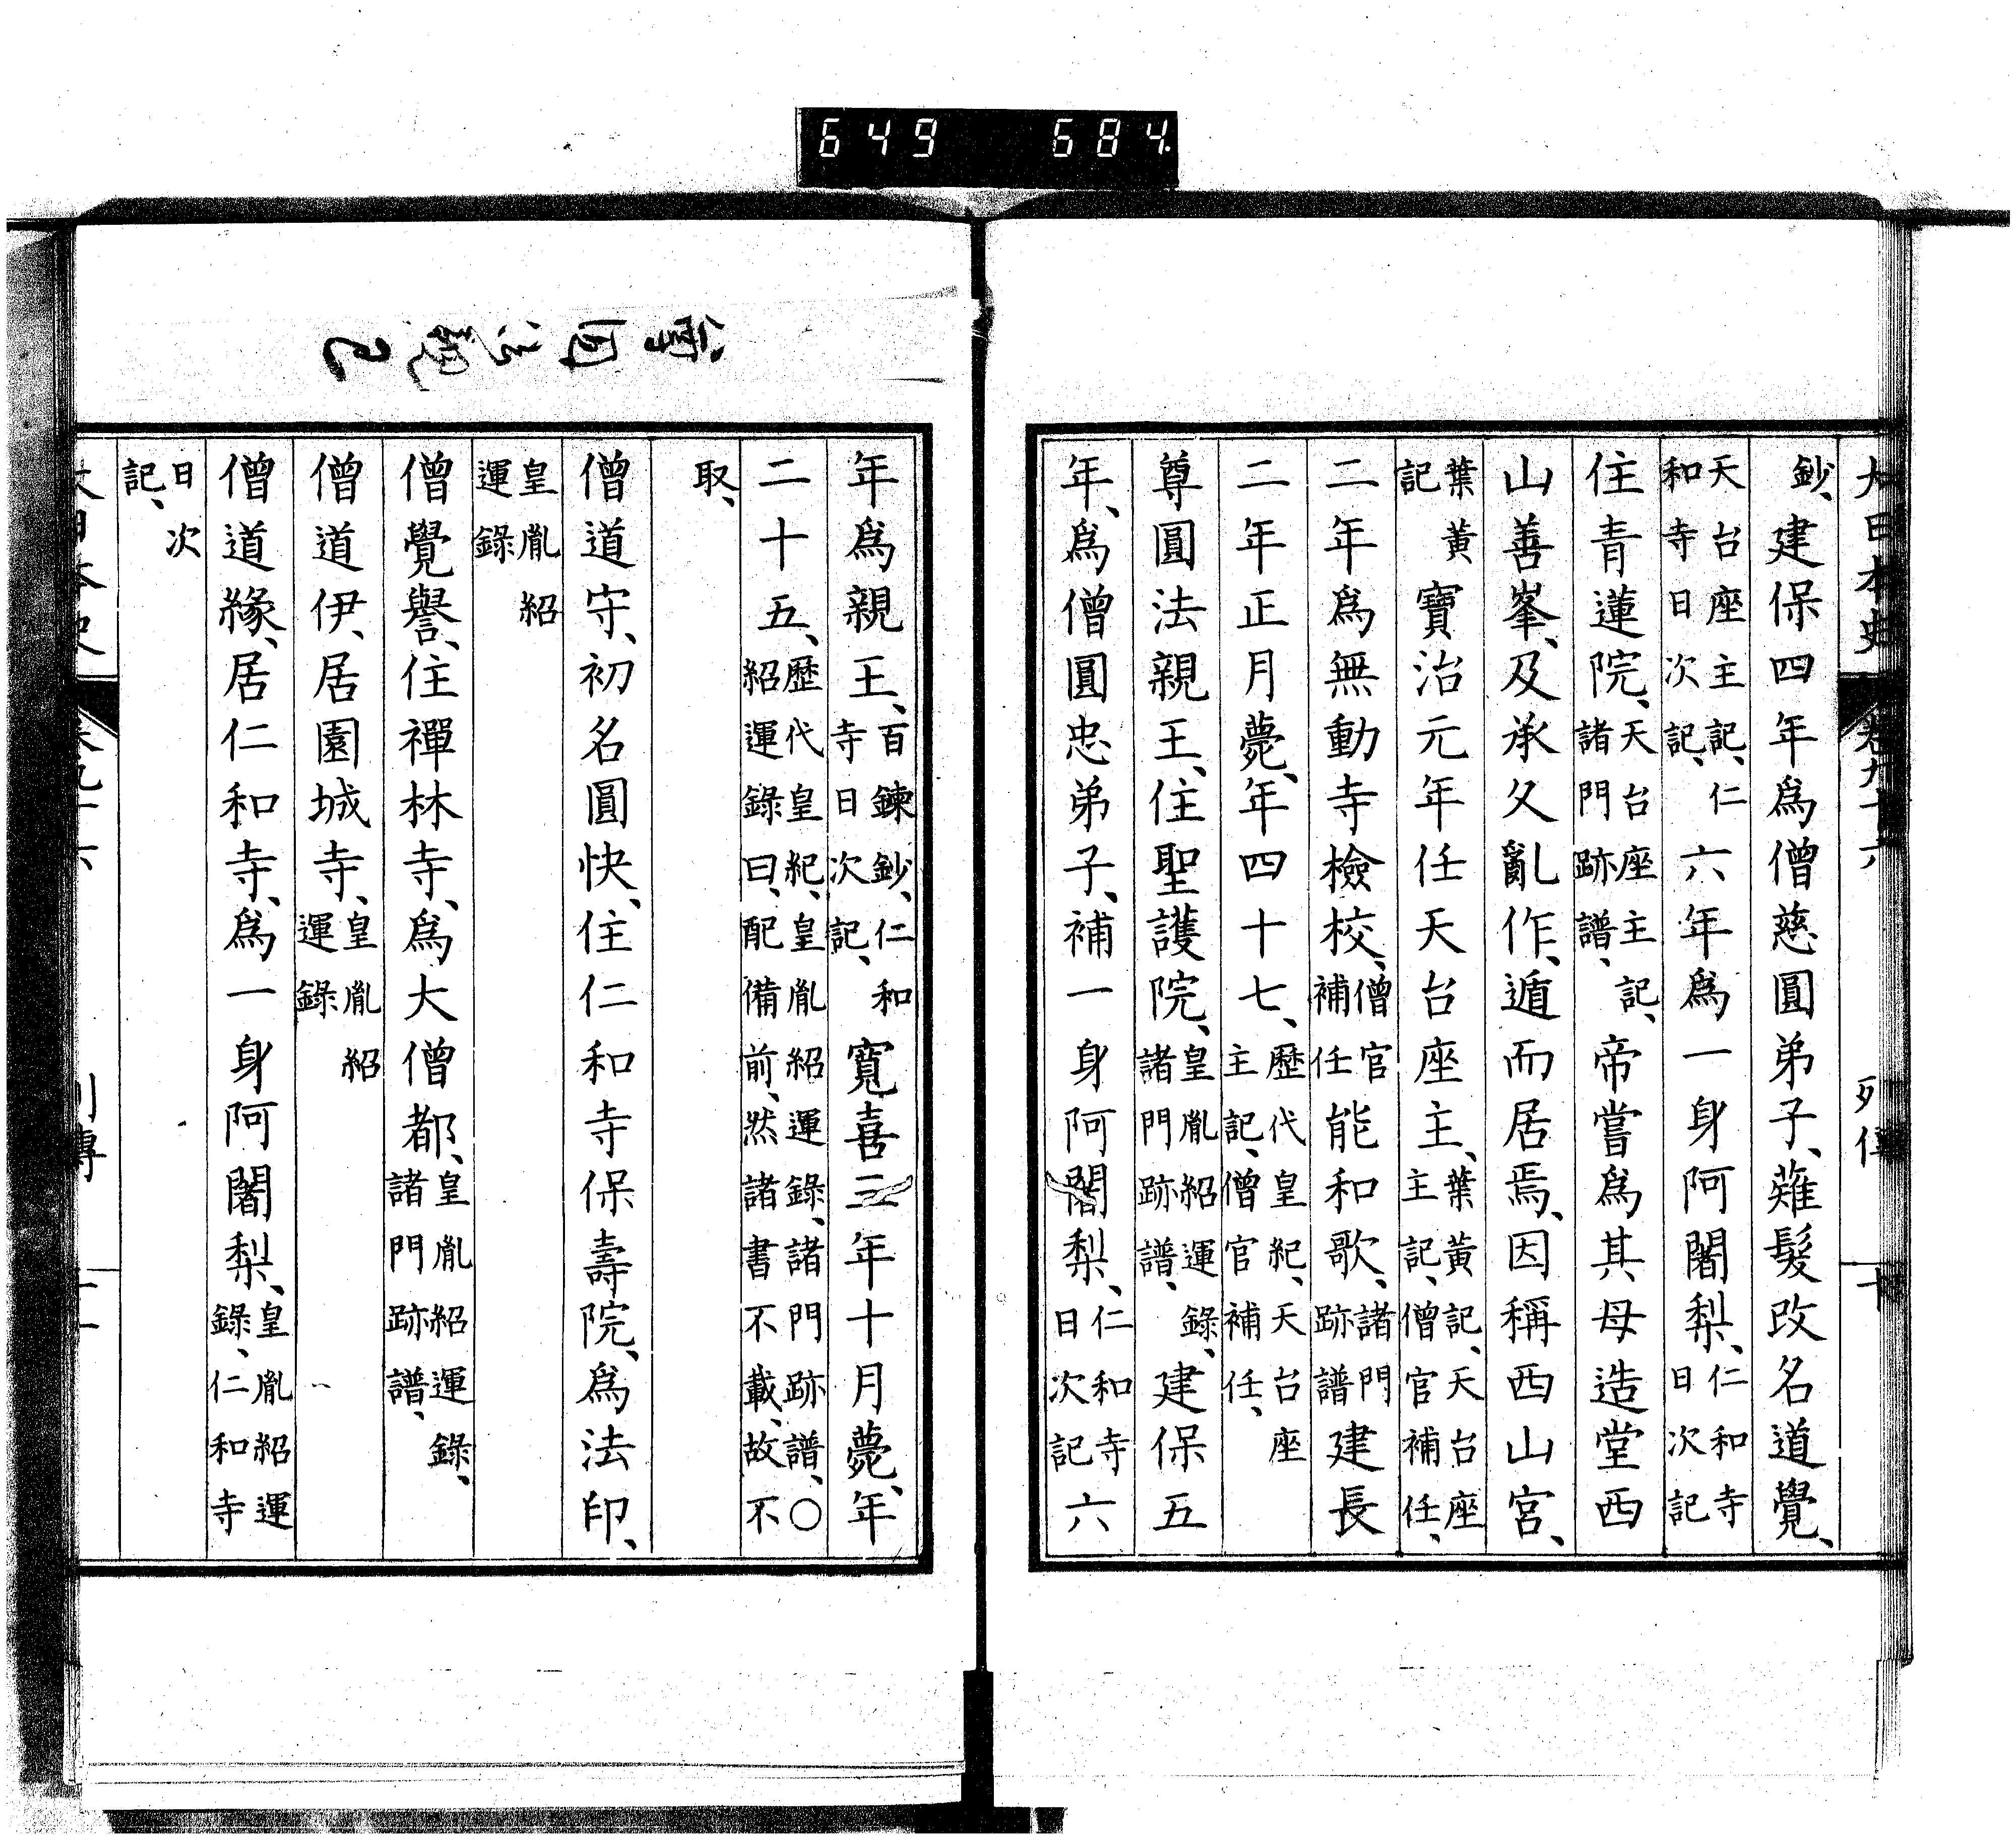 649 684.
大日本史 卷九十六 列傳 十
鈔、建保四年爲僧慈圓弟子、薙髮改名道覺、
天台座主記、仁和寺日次記、六年爲一身阿闍梨、仁和寺日次記
住青蓮院、天台座主記、諸門跡譜、帝嘗爲其母造堂西
山善峯、及承久亂作、遁而居焉、因稱西山宮、
葉黃記寶治元年任天台座主、葉黃記、天台座主記、僧官補任、
二年爲無動寺檢校、僧官補任能和歌、諸門跡譜建長
二年正月薨、年四十七、歷代皇紀、天台座主記、僧官補任、
尊圓法親王、住聖護院、皇胤紹運錄、諸門跡譜、建保五
年、爲僧圓忠弟子、補一身阿闍梨、仁和寺日次記六
年爲親王、百鍊鈔、仁和寺日次記、寬喜三年十月薨、年
二十五、歷代皇紀、皇胤紹運錄、諸門跡譜、○紹運錄曰、配備前、然諸書不載、故不
取、
僧道守、初名圓快、住仁和寺保壽院、爲法印、
皇胤紹運錄
僧覺譽、住禪林寺、爲大僧都、皇胤紹運錄、諸門跡譜、
僧道伊、居園城寺、皇胤紹運錄
僧道緣、居仁和寺、爲一身阿闍梨、皇胤紹運錄、仁和寺
日次記、
大日本史 卷九十六 列傳 十一